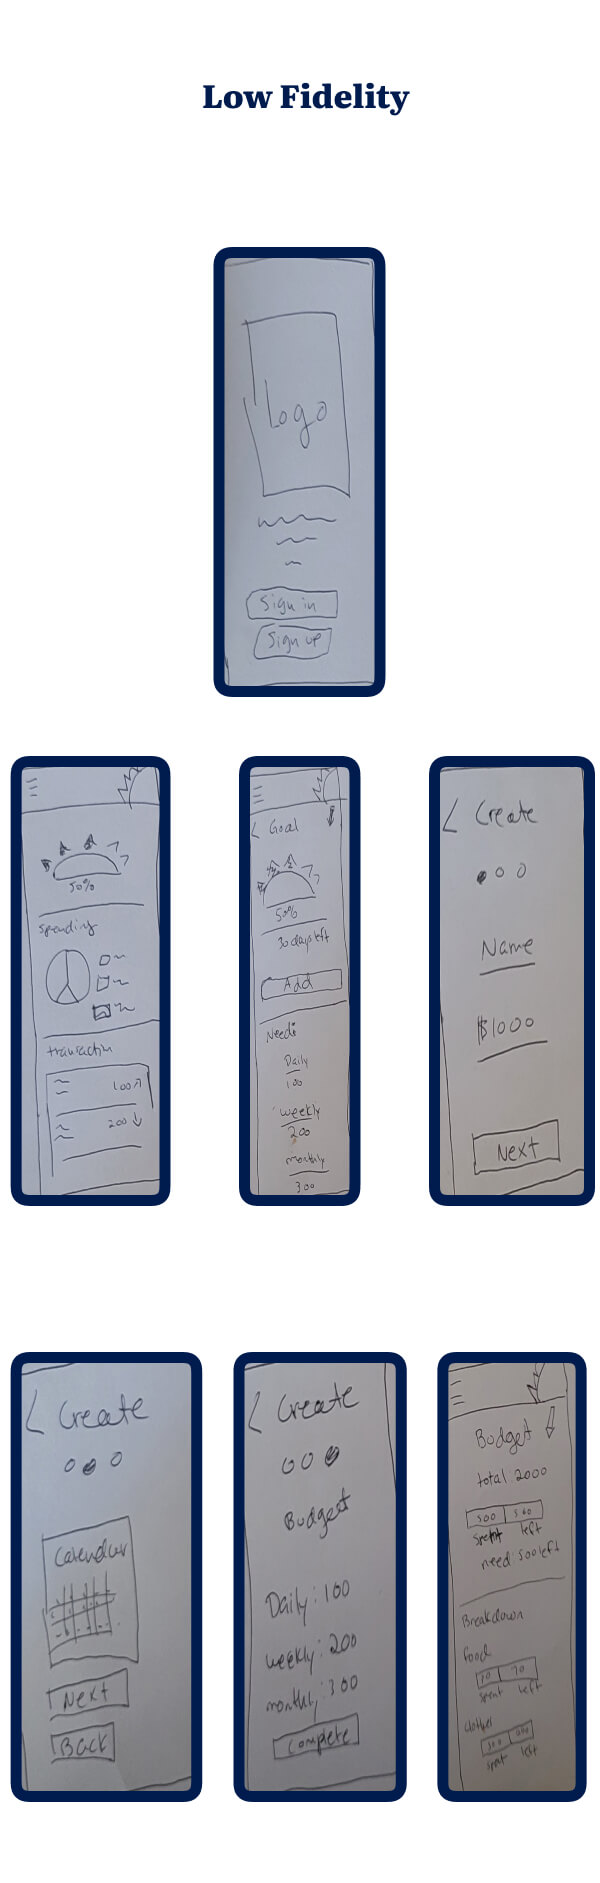 Low Fidelity
Logo
Sign in
Sign up
50%
Spending
transaction
100
200
Goal
50%
30 days left
Add
Needs
Daily
100
weekly
200
monthly
300
Create
Name
$1000
Next
Create
Calendar
Next
Back
Create
Budget
Daily: 100
weekly: 200
monthly: 300
Complete
Budget
total 2000
500
spent left
need: 500 left
Breakdown
food
70
spent left
spent left